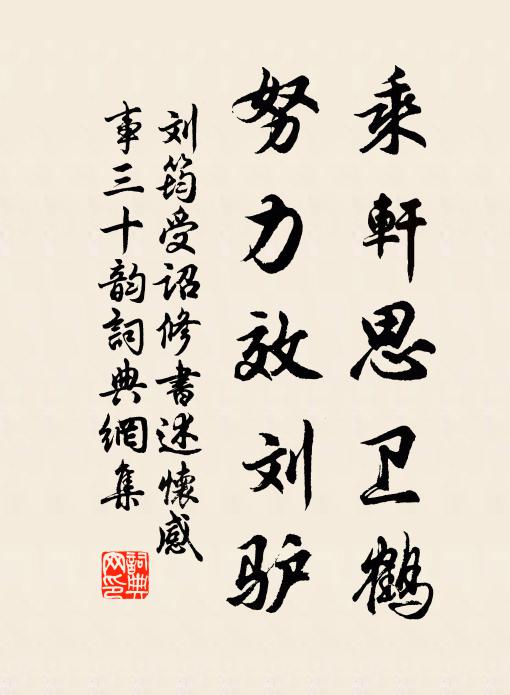 乘軒思卫鹤
努力效刘驴
刘筠受诏修書述懷感
事三十韵詞典網集
詞典网印